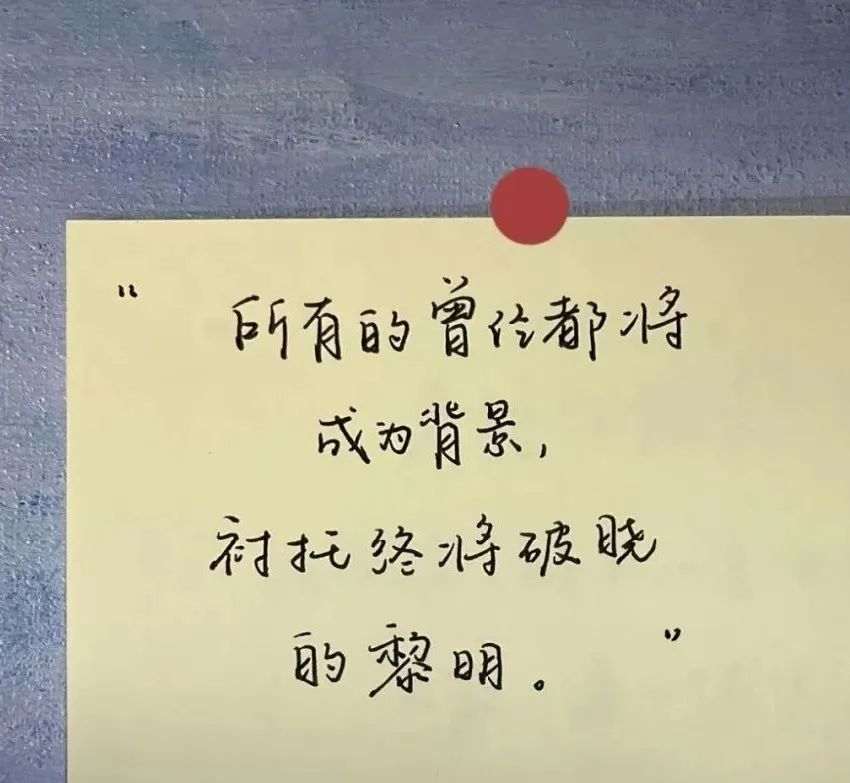 “所有的曾经都将
成为背景，
衬托终将破晓
的黎明。”